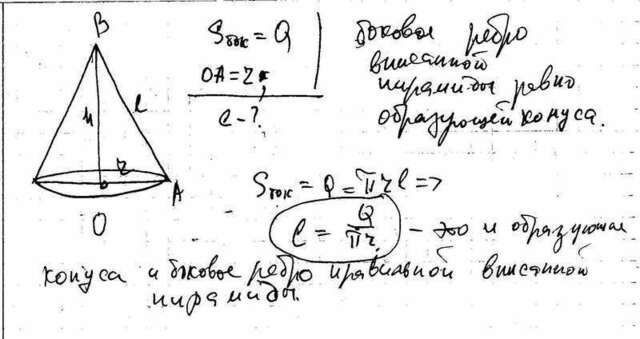 B
h
l
r
A
O
Sбок = Q
OA = r
l - ?
боковое ребро
вписанной
пирамиды равно
образующей конуса.
Sбок = Q = πrl =>
l = Q/πr - это и образующая
конуса и боковое ребро правильной вписанной
пирамиды.